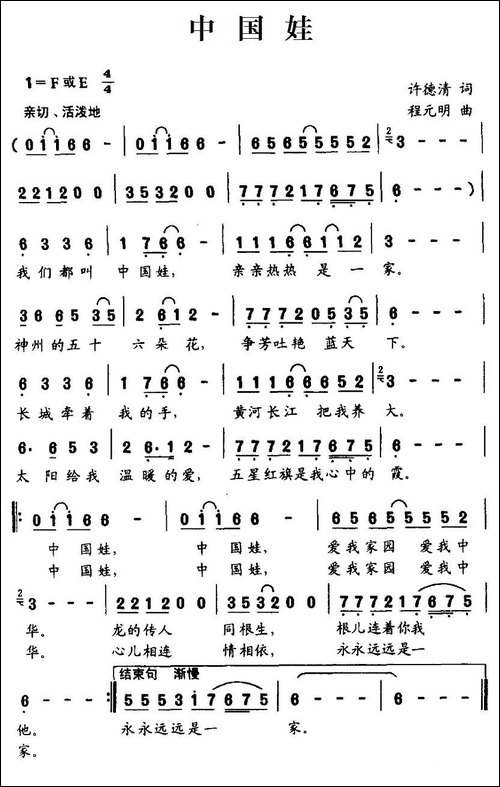 中国娃
1=F或E 4/4
许德清 词
亲切、活泼地
程元明 曲
(0 1 1 6 6 - | 0 1 1 6 6 - | 6 5 6 5 5 5 5 2 | 2 3 - - - |
2 2 1 2 0 0 | 3 5 3 2 0 0 | 7 7 7 2 1 7 6 7 5 | 6 - - - )|
6 3 3 6 | 1 7 6 6 - | 1 1 1 6 6 1 1 2 | 3 - - - |
我们都叫 中国娃, 亲亲热热 是一家。
3 6 6 5 3 5 | 2 6 1 2 - | 7 7 7 2 0 5 3 5 | 6 - - - |
神州的五十 六朵花, 争芳吐艳 蓝天下。
6 3 3 3 | 7 6 6 - | 1 1 1 6 6 6 5 2 | 2 3 - - - |
长城牵着 我的手, 黄河长江 把我养大。
6· 6 5 3 | 2 6· 1 2 - | 7 7 7 2 1 7 6 7 5 | 6 - - - |
太阳给我 温暖的爱, 五星红旗是我心中的霞。
‖: 0 1 1 6 6 - | 0 1 1 6 6 - | 6 5 6 5 5 5 5 2 |
中国娃, 中国娃, 爱我家园 爱我中
中国娃, 中国娃, 爱我家园 爱我中
2 3 - - - | 2 2 1 2 0 0 | 3 5 3 2 0 0 | 7 7 7 2 1 7 6 7 5 |
华。 龙的传人 同根生, 根儿连着你我
华。 心儿相连 情相依, 永永远远是一
结束句 渐慢
6 - - - :‖ 5 5 5 3 1 7 6 7 5 | 6 - - - | 6 - - - ‖
他。 永永远远是一 家。
家。